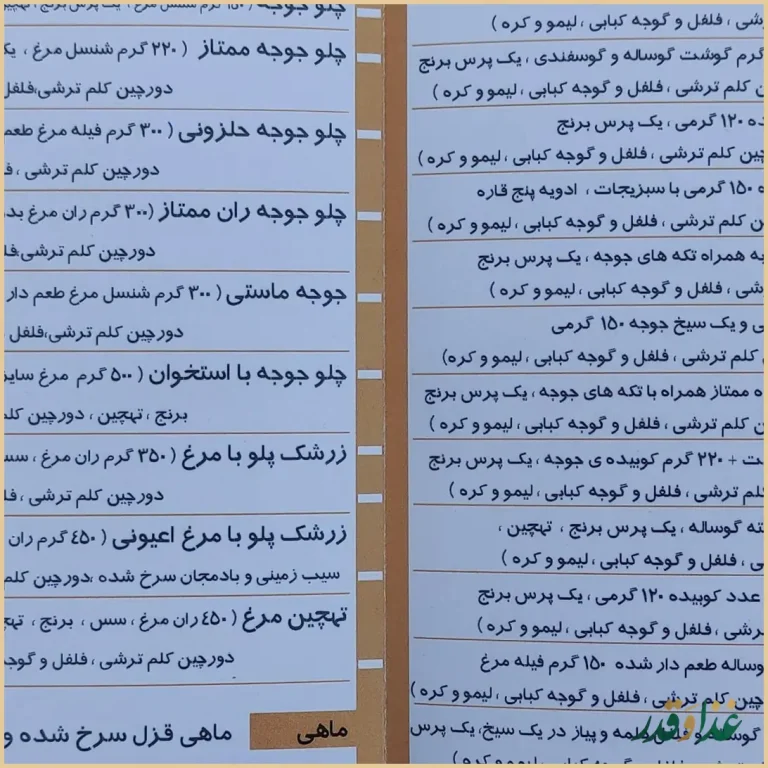 شی ، فلفل و گوجه کبابی ، لیمو و کره )
گرم گوشت گوساله و گوسفندی ، یک پرس برنج
کلم ترشی ، فلفل و گوجه کبابی ، لیمو و کره )
۱۲۰ گرمی ، یک پرس برنج
چین کلم ترشی ، فلفل و گوجه کبابی ، لیمو و کره )
۱۵۰ گرمی با سبزیجات ، ادویه پنج قاره
کلم ترشی ، فلفل و گوجه کبابی ، لیمو و کره )
به همراه تکه های جوجه ، یک پرس برنج
شی ، فلفل و گوجه کبابی ، لیمو و کره )
و یک سیخ جوجه ۱۵۰ گرمی
کلم ترشی ، فلفل و گوجه کبابی ، لیمو و کره)
ممتاز همراه با تکه های جوجه ، یک پرس برنج
کلم ترشی ، فلفل و گوجه کبابی ، لیمو و کره )
+ ۲۲۰ گرم کوبیده ی جوجه ، یک پرس برنج
کلم ترشی ، فلفل و گوجه کبابی ، لیمو و کره )
ته گوساله ، یک پرس برنج ، تهچین ،
ی ، فلفل و گوجه کبابی ، لیمو و کره )
عدد کوبیده ۱۲۰ گرمی ، یک پرس برنج
رشی ، فلفل و گوجه کبابی ، لیمو و کره )
وساله طعم دار شده ۱۵۰ گرم فیله مرغ
چین کلم ترشی ، فلفل و گوجه کبابی ، لیمو و کره )
و پیاز در یک سیخ، یک پرس
غذا و قدر
چلو جوجه
چلو جوجه ممتاز ( ۲۲۰ گرم شنسل مرغ ، یک
دورچین کلم ترشی،فلفل
چلو جوجه حلزونی ( ۳۰۰ گرم فیله مرغ طعم
دورچین کلم ترشی ، ف
چلو جوجه ران ممتاز (۳۰۰ گرم ران مرغ بد
دورچین کلم ترشی،فل
جوجه ماستی ( ۳۰۰ گرم شنسل مرغ طعم دار
دورچین کلم ترشی،فلفل
چلو جوجه با استخوان ( ۵۰۰ گرم مرغ سایز
برنج ، تهچین ، دورچین کلم
زرشک پلو با مرغ ( ۳۵۰ گرم ران مرغ ، سس
دورچین کلم ترشی ، فل
زرشک پلو با مرغ اعیونی ( ٤٥٠ گرم ران
سیب زمینی و بادمجان سرخ شده ،دورچین کلم
تهچین مرغ ( ٤٥٠ ران مرغ ، سس ، برنج ، تهچ
دورچین کلم ترشی ، فلفل و گوجه
ماهی ماهی قزل سرخ شده و